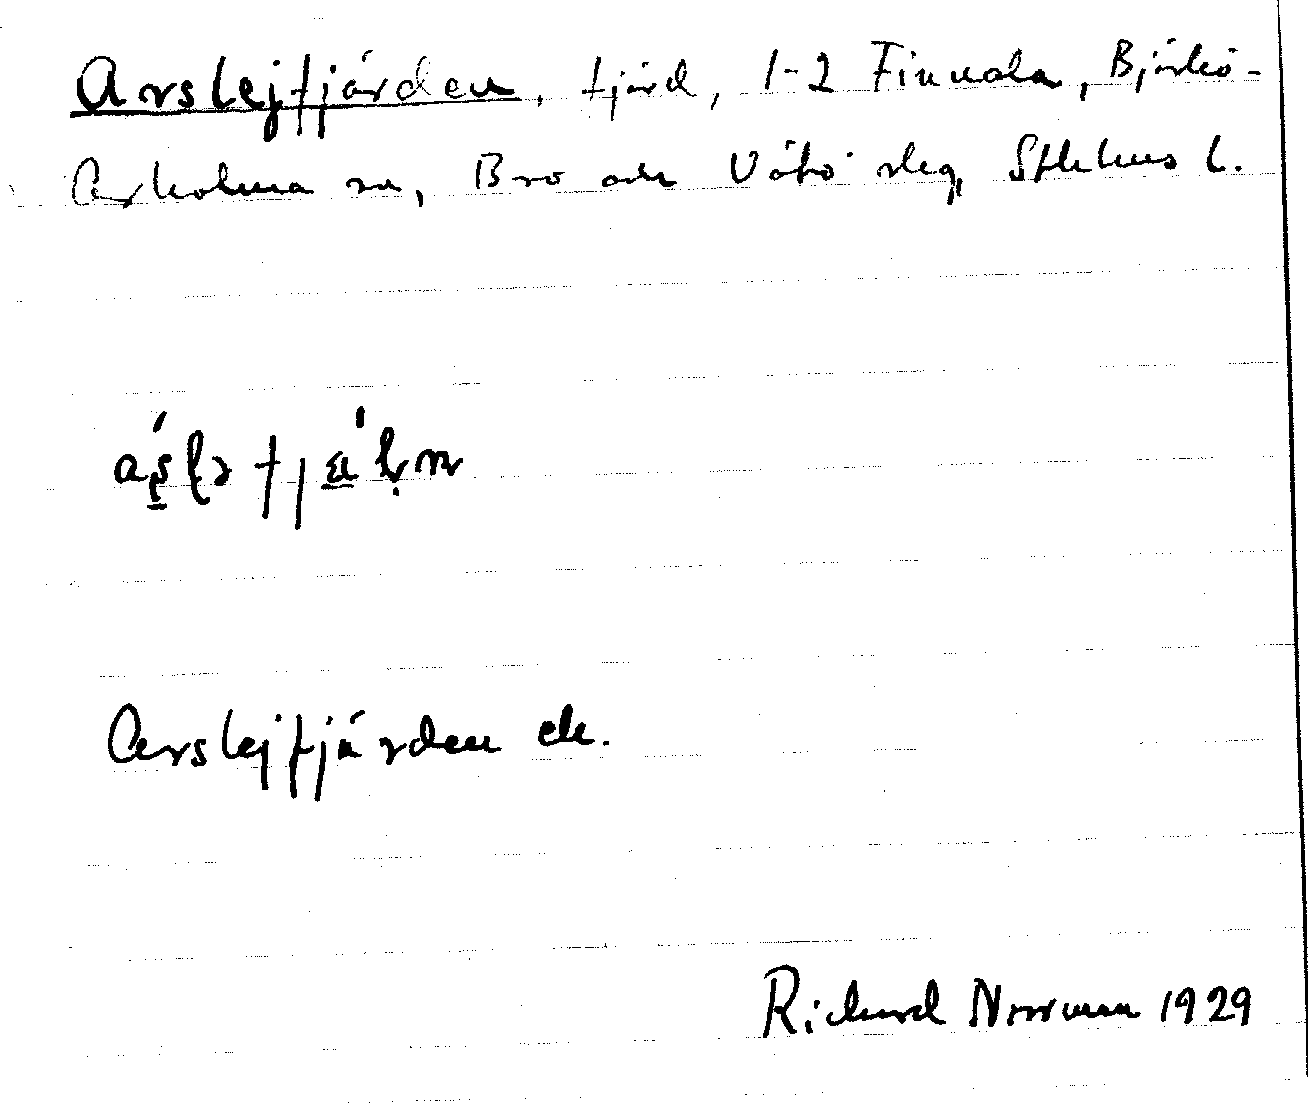 Arslejfjärden, fjärd, 1-2 Finnala, Björkö-
Arholma sn, Bro och Vätö slég, Sthlms l.
Arslejfjärden ek.
Richard Norrman 1929